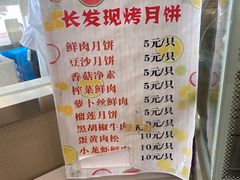 长发现烤月饼
鲜肉月饼 5元/只
豆沙月饼 5元/只
香菇净素 5元/只
榨菜鲜肉 5元/只
萝卜丝鲜肉 5元/只
榴莲月饼 10元/只
黑胡椒牛肉 10元/只
蛋黄肉松 10元/只
小龙虾鲜肉 10元/只